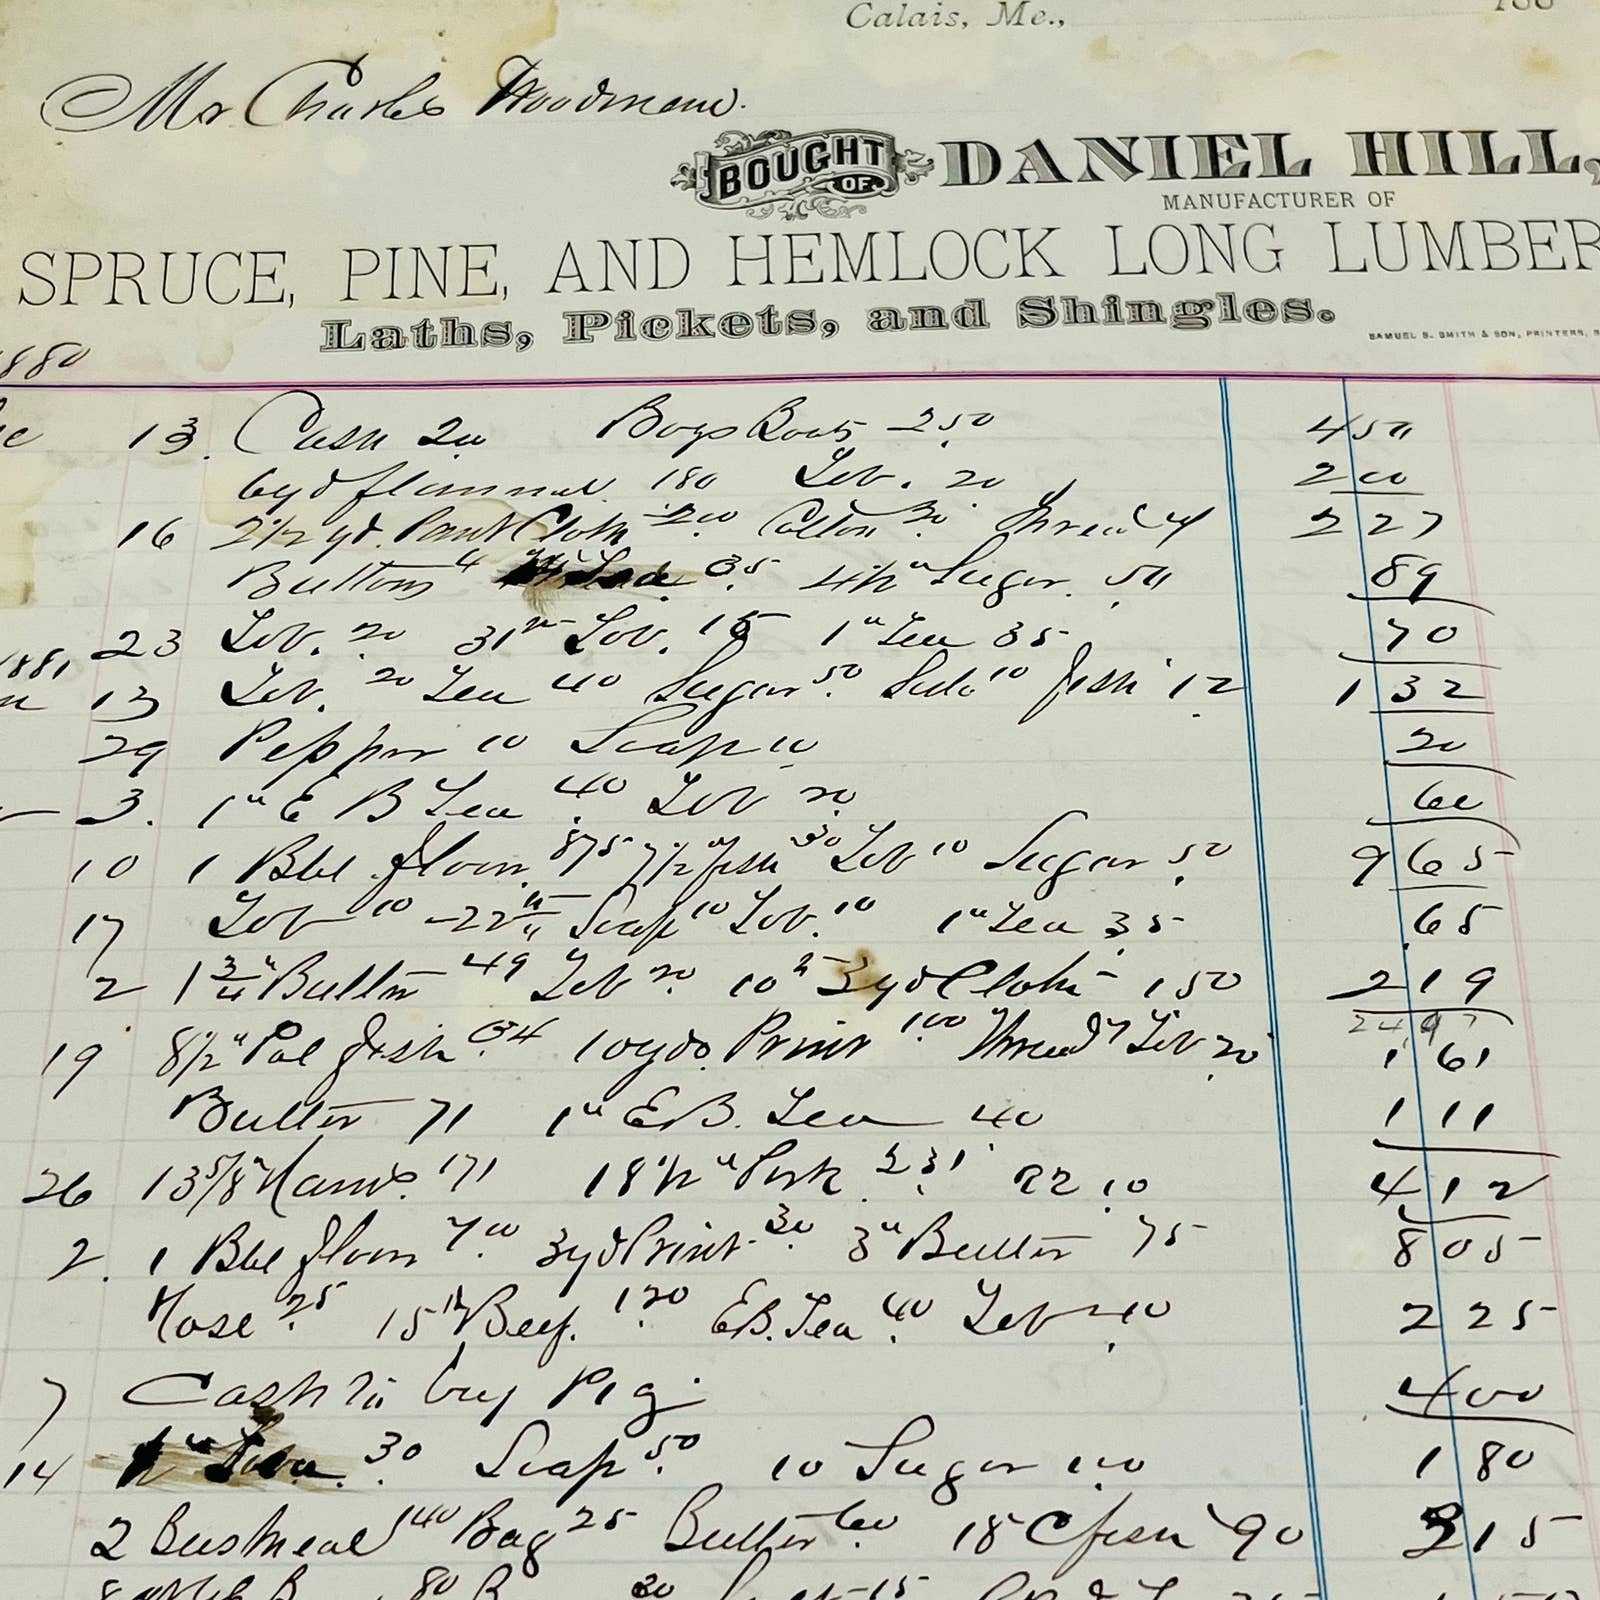 Calais, Me., 188
Mr Charles Woodman.
BOUGHT OF DANIEL HILL,
MANUFACTURER OF
SPRUCE, PINE, AND HEMLOCK LONG LUMBER
Laths, Pickets, and Shingles.
SAMUEL S. SMITH & SON, PRINTERS,
1880
13. Cash 200 Boys Boots 250 450
6yd flannel 180 Tob. 20 200
16 2 1/2 yd. Pant Cloth 200 Cotton 20 Thread 4 227
Buttons 4 35 4 1/2 " Sugar 50 89
23 Tob. 20 31 Tob. 15 1" Tea 35 70
1881 13 Tob. 20 Tea 40 Sugar 50 Soda 10 fish 12 1 32
29 Pepper 10 Soap 10 20
3. 1" E B Tea 40 Tob 20 60
10 1 Bbl flour 875 7 1/2 " fish 30 Tob 10 Sugar 50 9 65
17 Tob 10 22 Soap 10 Tob. 10 1" Tea 35 65
2 1 3/4 " Butter 49 Tob 20 10 3yd Cloth 150 2 19
24 97
19 8 1/2 " Pol fish 34 10yds. Print 100 Thread 7 Tob 20 1 61
Butter 71 1" E.B. Tea 40 1 11
26 13 5/8 " Ham 171 18 1/2 " Pork 231 RR 10 4 12
2. 1 Bbl flour 700 3yd Print 30 3" Butter 75 8 05
Hose 25 15 lb Beef. 150 EB. Tea 40 Tob 10 2 25
7 Cash to buy Pig 400
14 30 Soap 50 10 Sugar 100 1 80
2 Bush meal 140 Bag 25 Butter 60 18 C fish 90 3 15